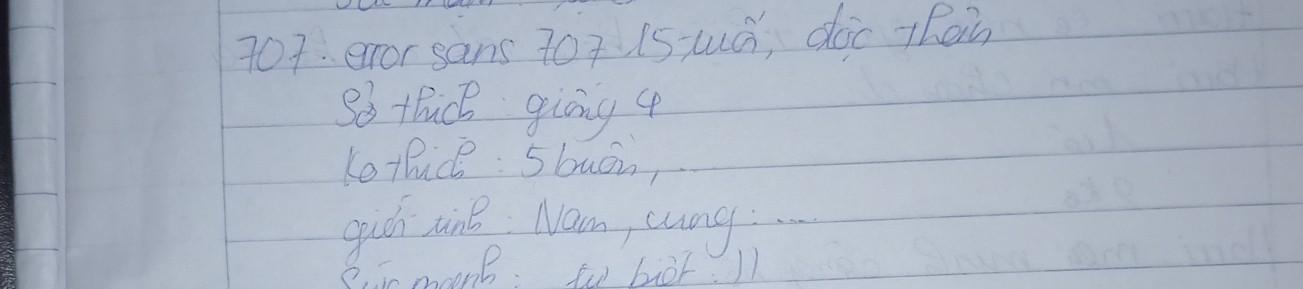 707. error sans 707 15 tuổi, độc thân
Sở thích: giống 4
Ko thích: 5 buồn, ...
giới tính: Nam, cung: ....
Sức mạnh: tự biết. ))